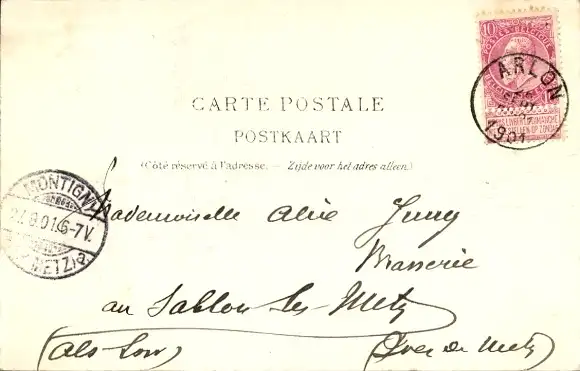 10
POSTES BELGIQUE
ARLON
SEPT
1901
CARTE POSTALE
POSTKAART
(Côté réservé à l'adresse. — Zijde voor het adres alleen.)
MONTIGNY
9.01. 6-7V.
METZ) a.
Mademoiselle Alice Jung
Brasserie
au Sablon les-Metz
(Als-Lor) (près de Metz)